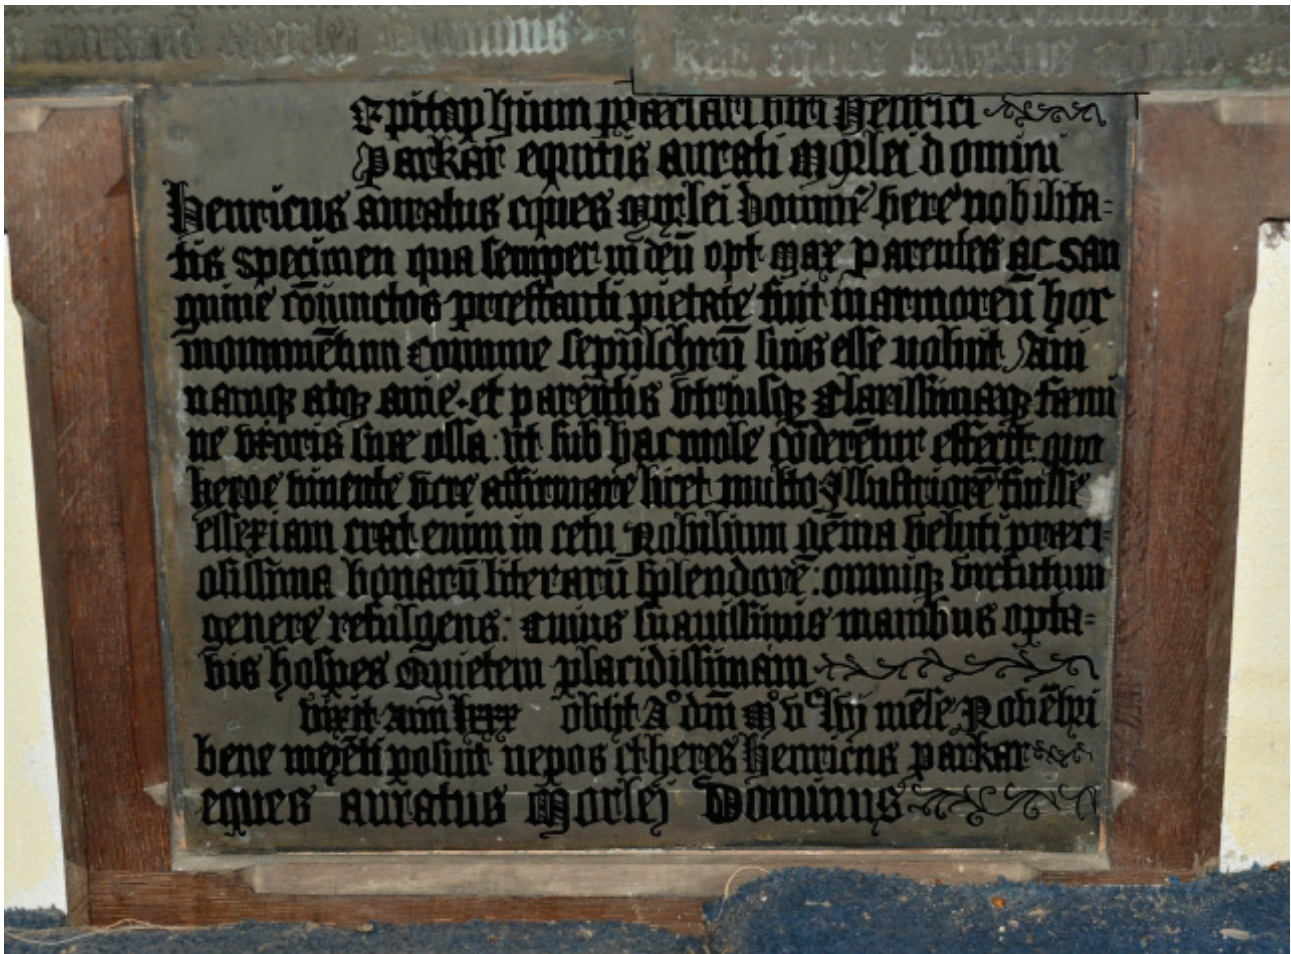 auratus Morlei Dominus
eques auratus
Epitaphium præclari viri Henrici
Parkar equitis aurati Morlei domini
Henricus auratus eques Morlei domin9 vere nobilita=
tis specimen qua semper in deū opt max parentes ac san
guine cōiunctos præstanti pietate fuit marmoreū hoc
monumētum comune sepulchrū suis esse voluit Am
namq; atq; auie et parētis vtriusq; Clarissimæq; fæmi
ne vxoris suæ ossa ut sub hac mole cōderētur effecit quo
heroe viuente vere affirmare licet multo Illustriorē fuisse
essexiam erat enim in cetu Nobilium gēma veluti præci
osissima bonarū literarū splendorē: omniq; virtutum
genere refulgens: Cuius suauissimis manibus opta=
bis hospes Quietem placidissimam
vixit ann lxxx obijt A° dm̄ M° v° lvj mēse Novēbri
bene merēti posuit nepos et heres Henricus parkar
eques auratus Morlej Dominus